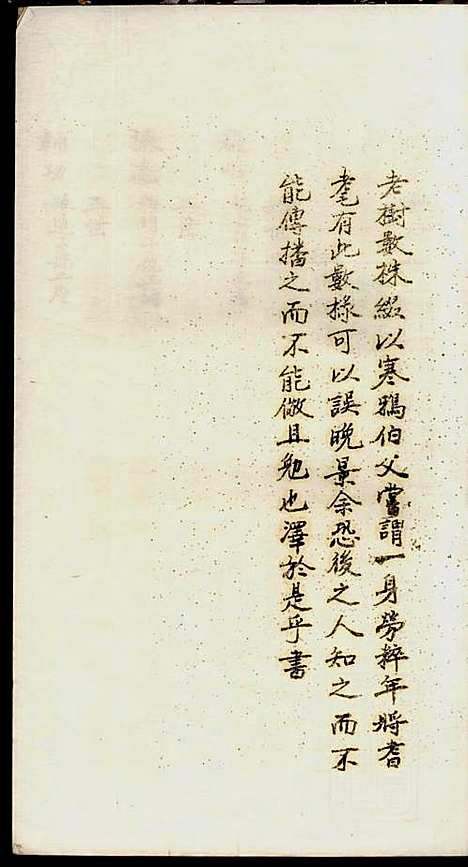 老樹數株綴以寒鴉伯父嘗謂一身勞粹年將耆
耄有此數椽可以誤晚景余恐後之人知之而不
能傳播之而不能儆且勉也澤於是乎書